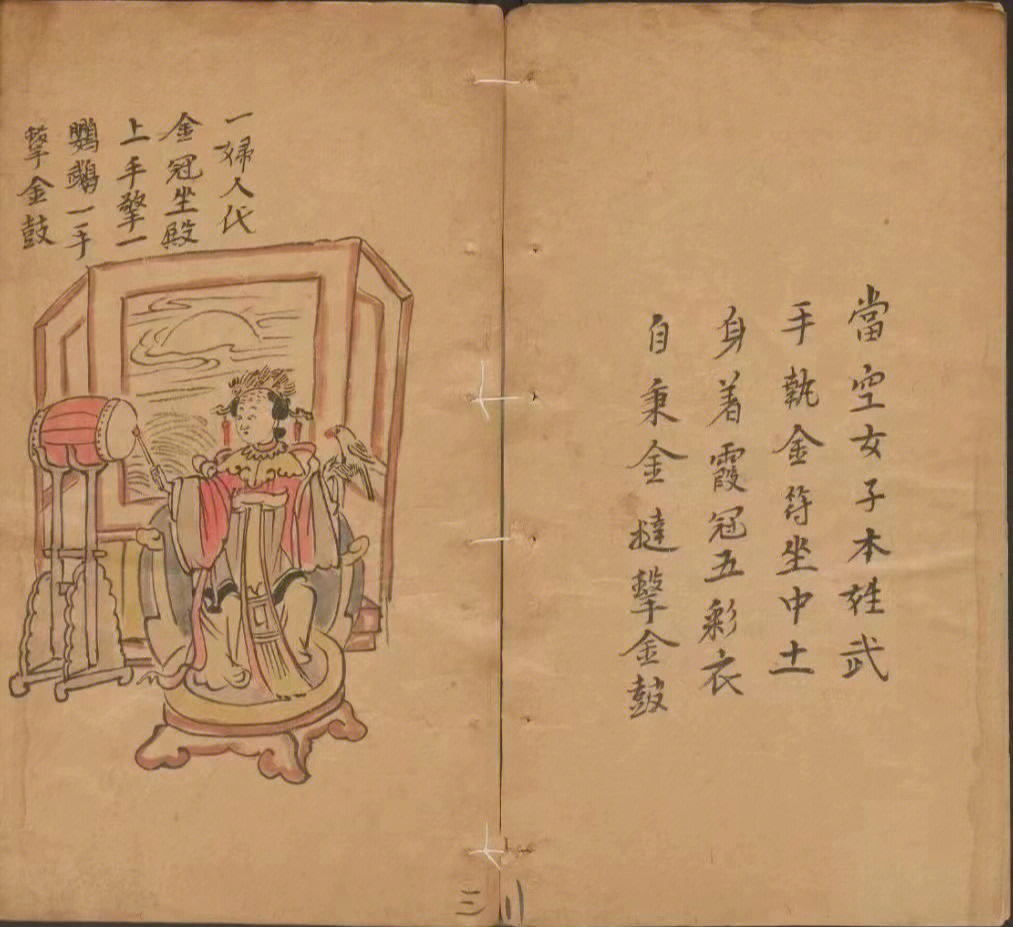 當空女子本姓武
手執金符坐中土
身着霞冠五彩衣
自秉金撻擊金鼓
〢
一婦人代
金冠坐殿
上手擎一
鸚鵡一手
擊金鼓
三